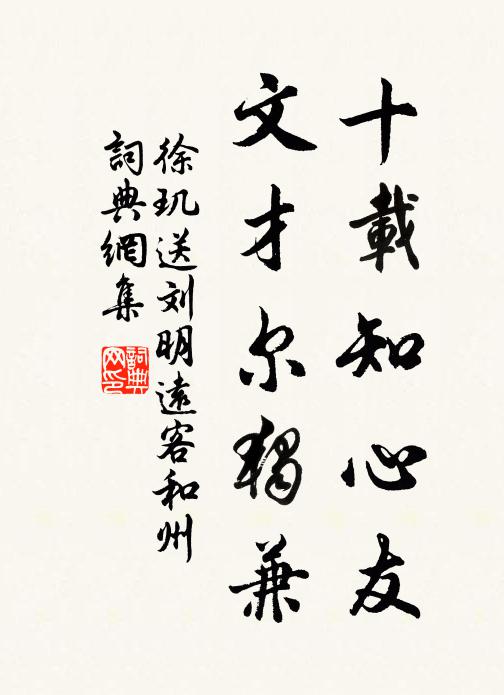 十載知心友
文才尔獨兼
徐玑送刘明遠客和州
詞典網集
詞典網印